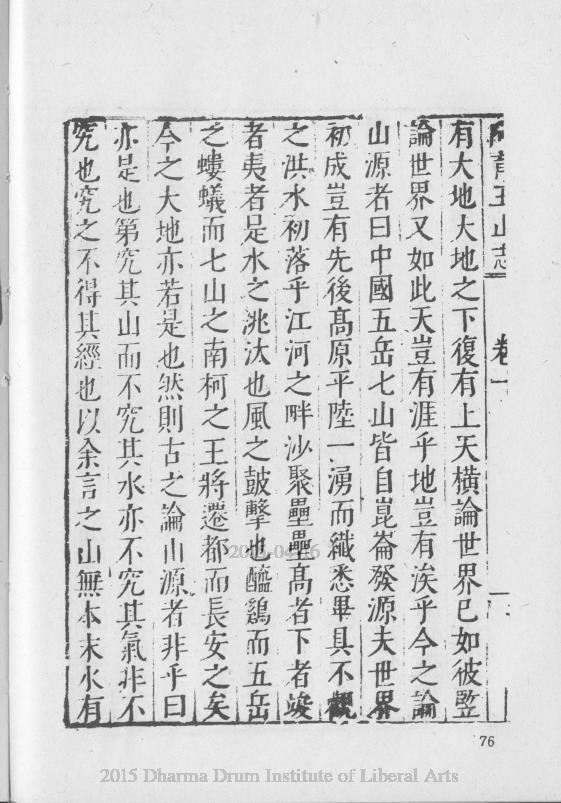 阿育王山志 卷一
有大地大地之下復有上天橫論世界已如彼竪
論世界又如此天豈有涯乎地豈有涘乎今之論
山源者曰中國五岳七山皆自崑崙發源夫世界
初成豈有先後高原平陸一湧而纖悉畢具不觀
之洪水初落乎江河之畔沙聚壘壘高者下者竣
者夷者是水之洮汰也風之鼓擊也醯鷄而五岳
之螻蟻而七山之南柯之王將遷都而長安之矣
今之大地亦若是也然則古之論山源者非乎曰
亦是也第究其山而不究其水亦不究其氣非不
究也究之不得其經也以余言之山無本末水有
76
2015 Dharma Drum Institute of Liberal Arts